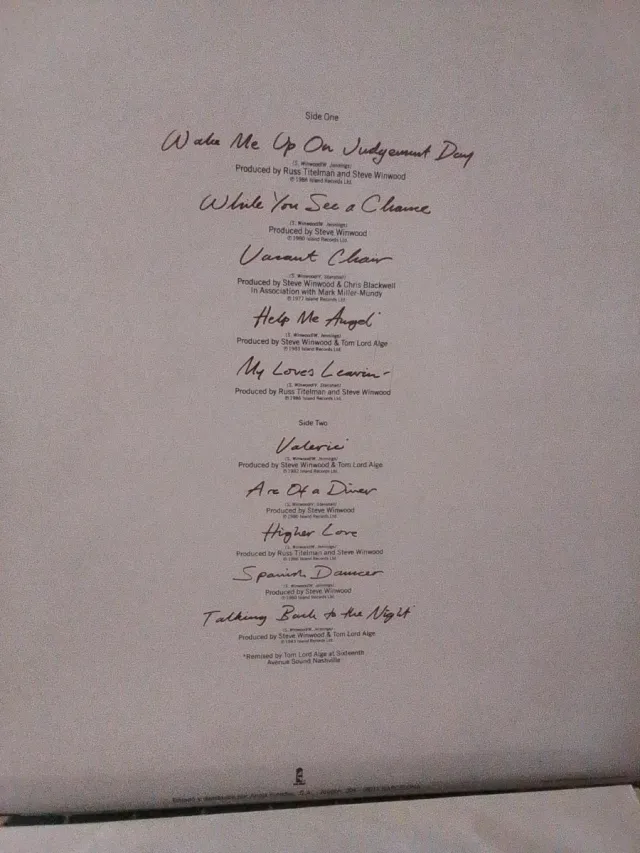 Side One
Wake Me Up On Judgement Day
(S. Winwood/W. Jennings)
Produced by Russ Titelman and Steve Winwood
℗ 1986 Island Records Ltd.
While You See a Chance
(S. Winwood/W. Jennings)
Produced by Steve Winwood
℗ 1980 Island Records Ltd.
Vacant Chair
(S. Winwood/V. Stanshall)
Produced by Steve Winwood & Chris Blackwell
In Association with Mark Miller-Mundy
℗ 1977 Island Records Ltd.
Help Me Angel
(S. Winwood/W. Jennings)
Produced by Steve Winwood & Tom Lord Alge
Island Records Ltd.
My Loves Leavin'
(S. Winwood/V. Stanshall)
Produced by Russ Titelman and Steve Winwood
℗ 1986 Island Records Ltd.
Side Two
Valerie
(S. Winwood/W. Jennings)
Produced by Steve Winwood & Tom Lord Alge
℗ 1982 Island Records Ltd.
Arc Of a Diver
(S. Winwood/V. Stanshall)
Produced by Steve Winwood
Island Records Ltd.
Higher Love
(S. Winwood/W. Jennings)
Produced by Russ Titelman and Steve Winwood
℗ 1986 Island Records Ltd.
Spanish Dancer
(S. Winwood/W. Jennings)
Produced by Steve Winwood
℗ 1980 Island Records Ltd.
Talking Back to the Night
(S. Winwood/W. Jennings)
Produced by Steve Winwood & Tom Lord Alge
Island Records Ltd.
*Remixed by Tom Lord Alge at Sixteenth
Avenue Sound Nashville
Editado y distribuido por Ariola Eurodisc, S.A., BARCELONA